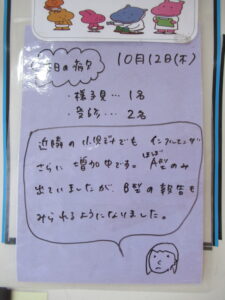 今日の病児
10月12日(木)
・様子見…1名
・受診…2名
近隣の小児科でも インフルエンザが
さらに増加中です。ほぼA型のみ
出ていましたが、B型の報告も
みられるようになりました。